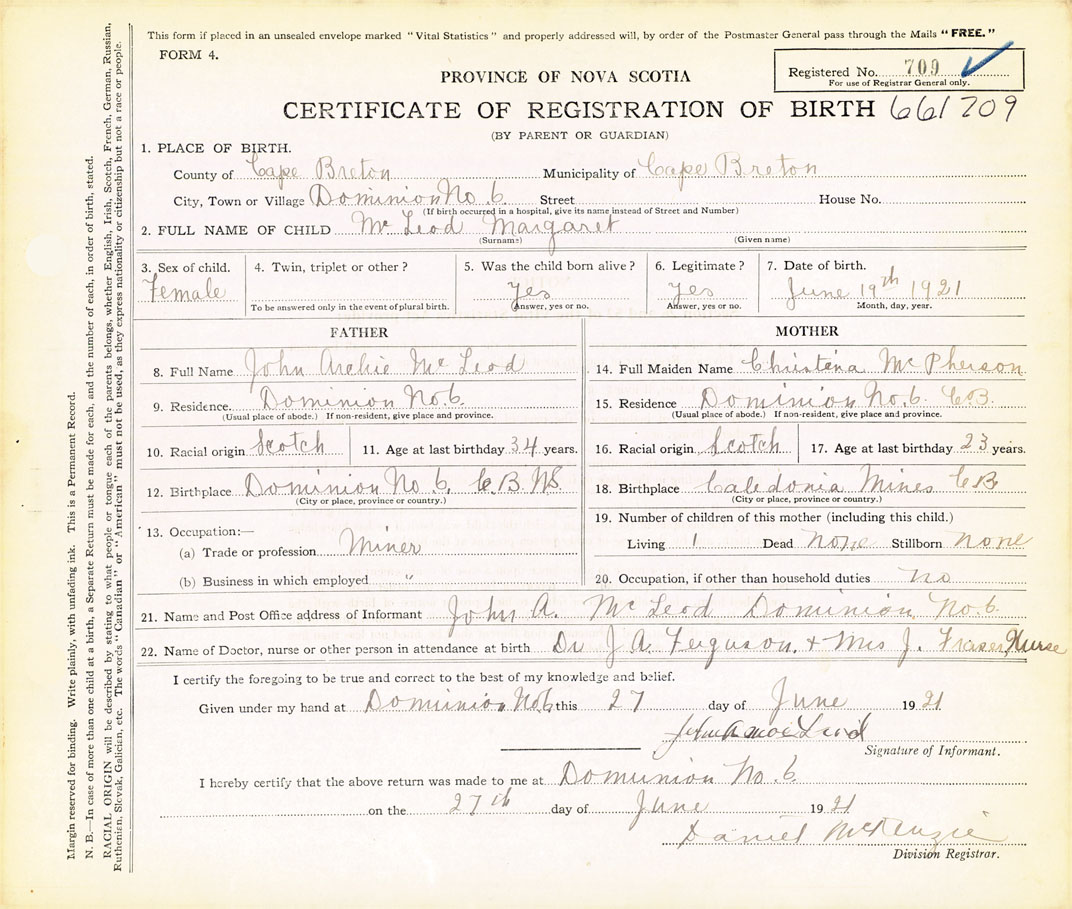 This form if placed in an unsealed envelope marked "Vital Statistics" and properly addressed will, by order of the Postmaster General pass through the Mails "FREE."
FORM 4.
PROVINCE OF NOVA SCOTIA
Registered No. 709
For use of Registrar General only.
CERTIFICATE OF REGISTRATION OF BIRTH 661709
(BY PARENT OR GUARDIAN)
1. PLACE OF BIRTH.
County of Cape Breton Municipality of Cape Breton
City, Town or Village Dominion No. 6. Street House No.
(If birth occurred in a hospital, give its name instead of Street and Number)
2. FULL NAME OF CHILD McLeod Margaret
(Surname) (Given name)
3. Sex of child. 4. Twin, triplet or other? 5. Was the child born alive? 6. Legitimate? 7. Date of birth.
Female Yes Yes June 19th 1921
To be answered only in the event of plural birth. Answer, yes or no. Answer, yes or no. Month, day, year.
FATHER
8. Full Name John Archie McLeod
9. Residence. Dominion No. 6.
(Usual place of abode.) If non-resident, give place and province.
10. Racial origin Scotch 11. Age at last birthday 34 years.
12. Birthplace Dominion No 6, C.B. N.S.
(City or place, province or country.)
13. Occupation:—
(a) Trade or profession Miner
(b) Business in which employed "
MOTHER
14. Full Maiden Name Christena McPherson
15. Residence Dominion No. 6. C.B.
(Usual place of abode.) If non-resident, give place and province.
16. Racial origin Scotch 17. Age at last birthday 23 years.
18. Birthplace Caledonia Mines C.B
(City or place, province or country.)
19. Number of children of this mother (including this child.)
Living 1 Dead none Stillborn none
20. Occupation, if other than household duties no
21. Name and Post Office address of Informant John A. McLeod Dominion, No. 6.
22. Name of Doctor, nurse or other person in attendance at birth Dr J A. Ferguson. + Mrs J. Fraser, Nurse
I certify the foregoing to be true and correct to the best of my knowledge and belief.
Given under my hand at Dominion No. 6 this 27 day of June 1921
John A MacLeod
Signature of Informant.
I hereby certify that the above return was made to me at Dominion No. 6.
on the 27th day of June 1921
Daniel McKenzie
Division Registrar.
Margin reserved for binding. Write plainly, with unfading ink. This is a Permanent Record.
N. B.—In case of more than one child at a birth, a Separate Return must be made for each, and the number of each, in order of birth, stated.
RACIAL ORIGIN will be described by stating to what people or tongue each of the parents belongs, whether English, Irish, Scotch, French, German, Russian,
Ruthenian, Slovak, Galician, etc. The words "Canadian" or "American" must not be used, as they express nationality or citizenship but not a race or people.